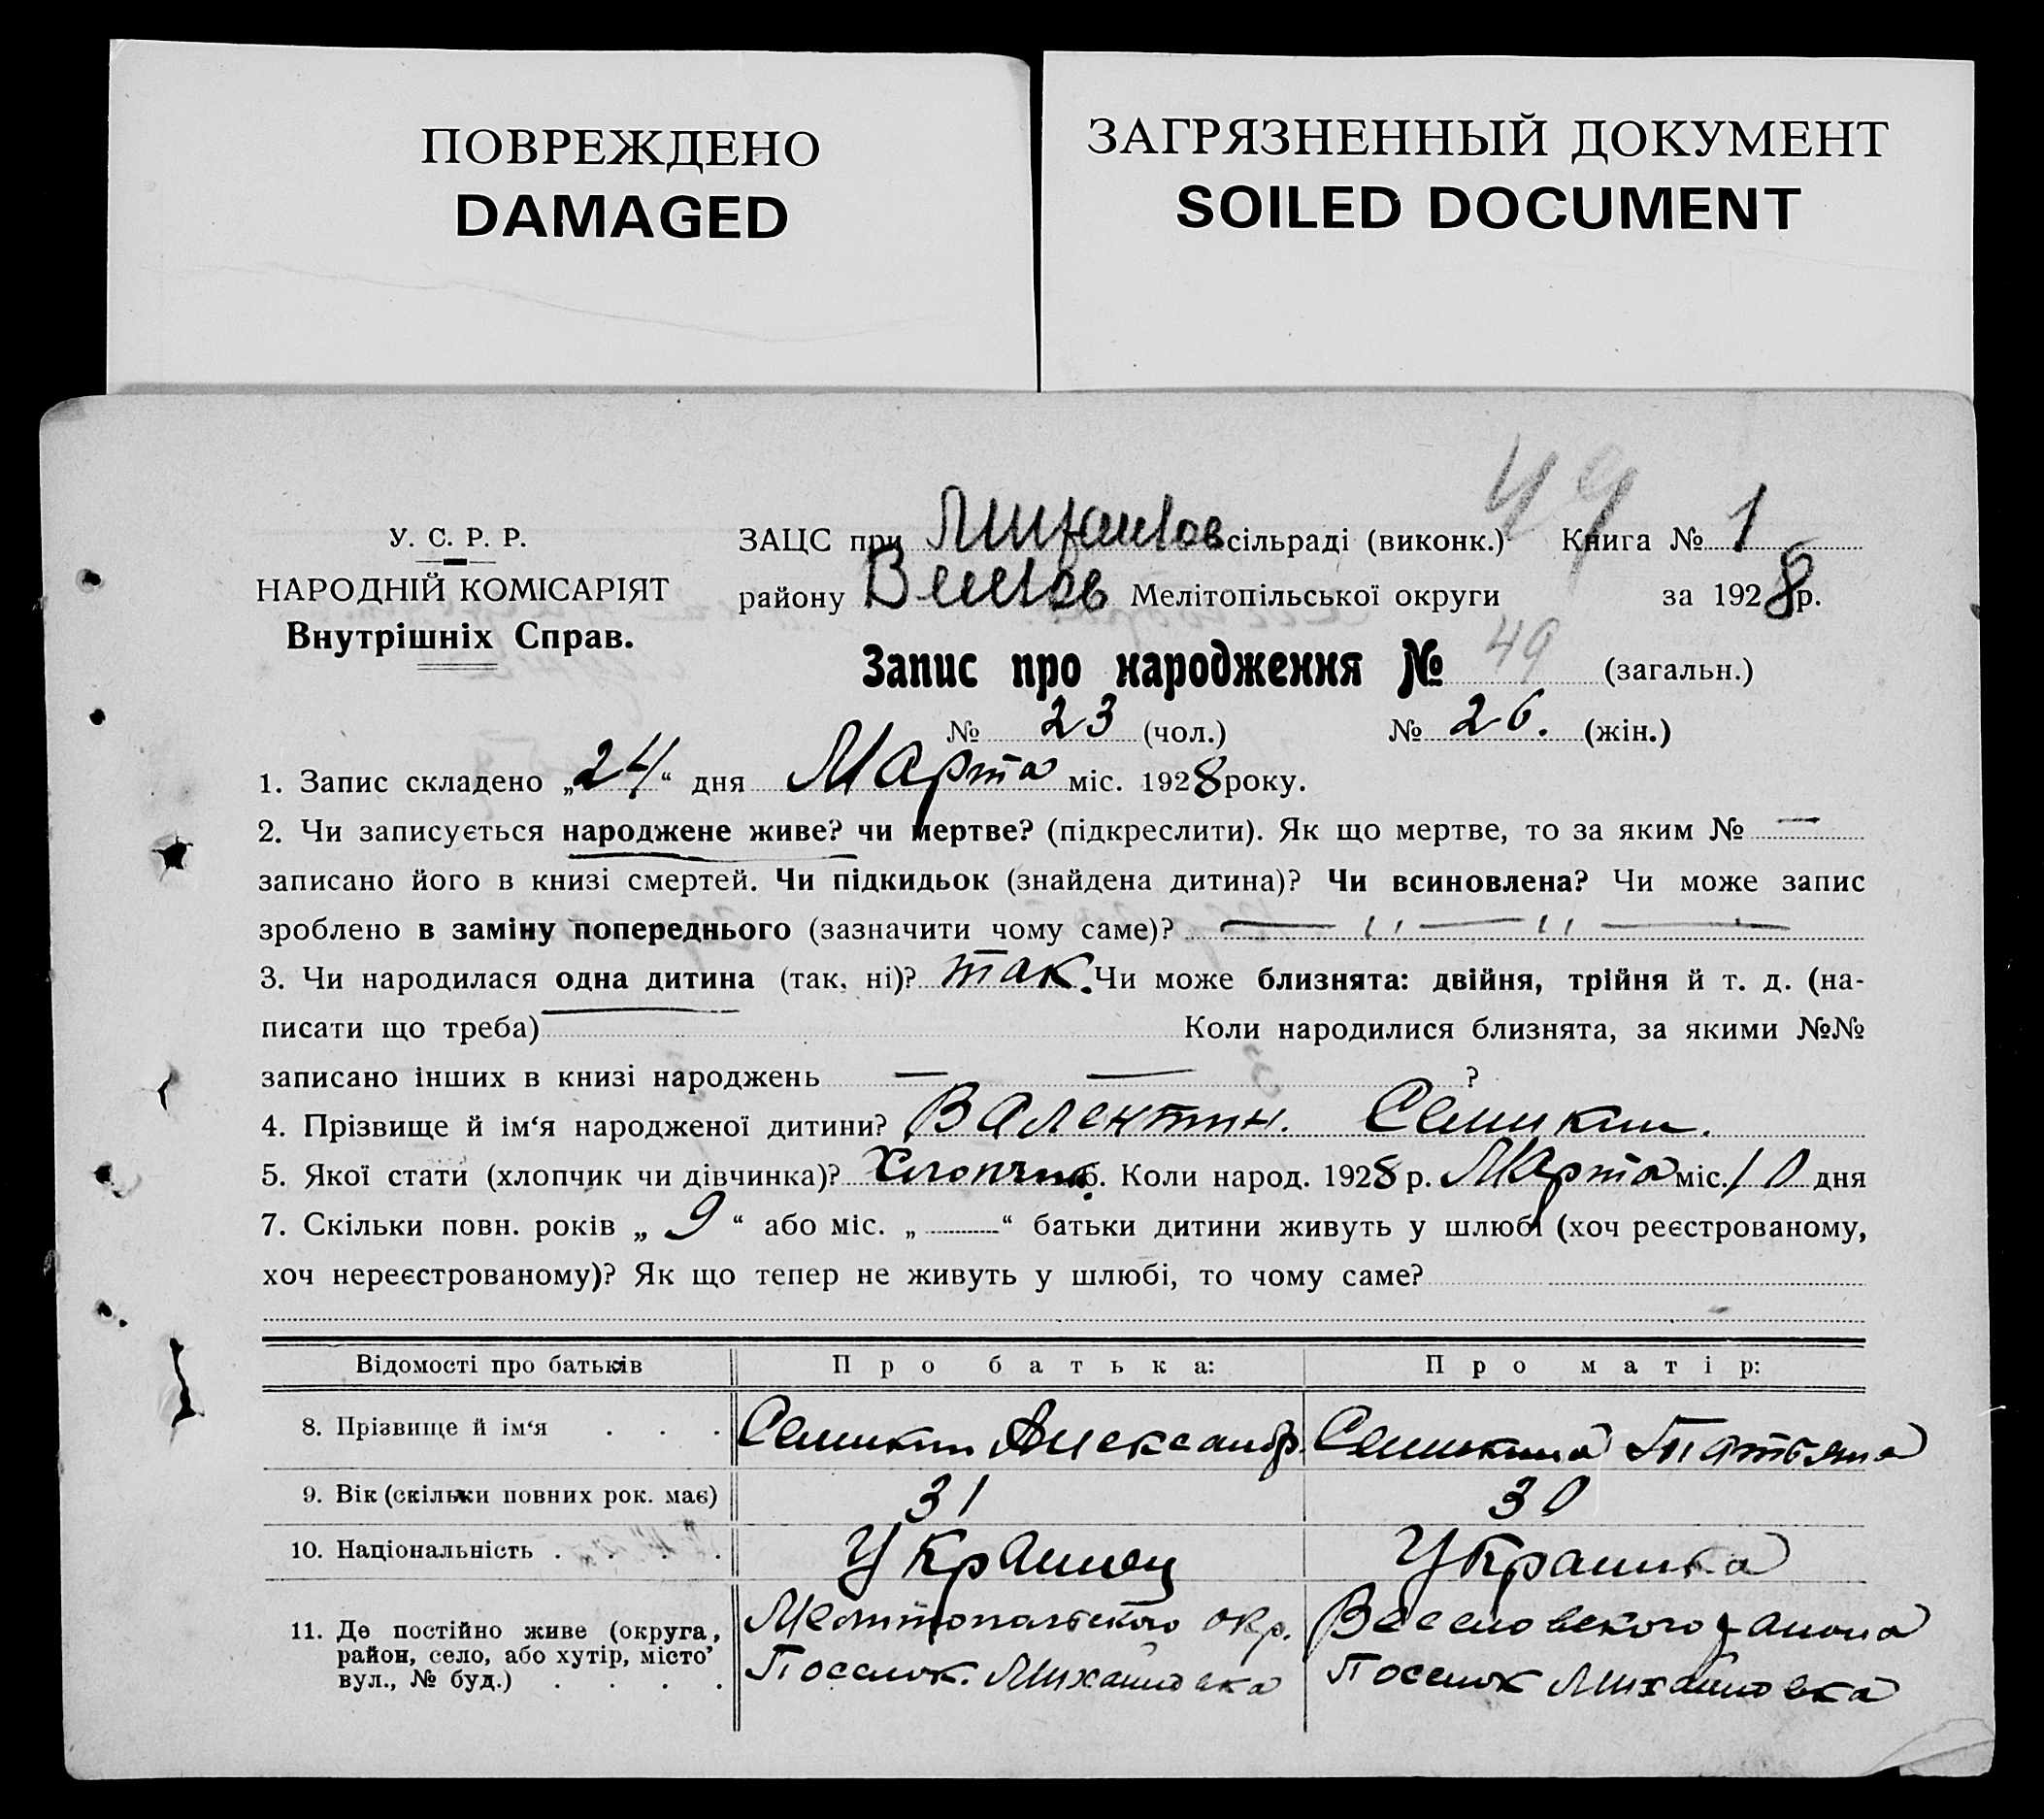 ПОВРЕЖДЕНО
DAMAGED
ЗАГРЯЗНЕННЫЙ ДОКУМЕНТ
SOILED DOCUMENT
49
У. С. Р. Р.
НАРОДНІЙ КОМІСАРІЯТ
Внутрішніх Справ.
ЗАЦС при Михайлов сільраді (виконк.) Книга № 1
району Весел​ов Мелітопільської округи за 1928 р.
Запис про народження № 49 (загальн.)
№ 23 (чол.) № 26. (жін.)
1. Запис складено „24“ дня Марта міс. 1928 року.
2. Чи записується народжене живе? чи мертве? (підкреслити). Як що мертве, то за яким № —
записано його в книзі смертей. Чи підкидьок (знайдена дитина)? Чи всиновлена? Чи може запис
зроблено в заміну попереднього (зазначити чому саме)? — ıı — ıı —
3. Чи народилася одна дитина (так, ні)? так. Чи може близнята: двійня, трійня й т. д. (на-
писати що треба) Коли народилися близнята, за якими №№
записано інших в книзі народжень — — ?
4. Прізвище й ім‘я народженої дитини? Валентин. Семикин.
5. Якої стати (хлопчик чи дівчинка)? Хлопчик 6. Коли народ. 1928 р. Марта міс. 10 дня
7. Скільки повн. років „ 9 “ або міс. „ “ батьки дитини живуть у шлюбі (хоч реєстрованому,
хоч нереєстрованому)? Як що тепер не живуть у шлюбі, то чому саме?
Відомості про батьків Про батька: Про матір:
8. Прізвище й ім‘я . . . Семикин Александр Семикина Татьяна
9. Вік (скільки повних рок. має) 31 30
10. Національність . . . . Украинец Украинка
11. Де постійно живе (округа, район, село, або хутір, місто’ вул., № буд.) . . . . Мелитопольского окр. Веселовского района
Поселок. Михайловка Поселок Михайловка